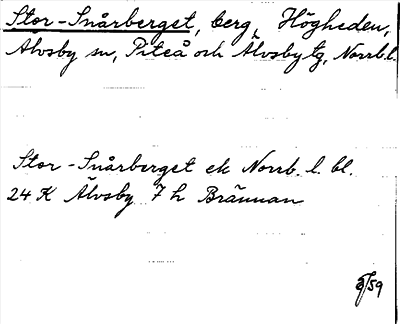 Stor-Snårberget, berg, Högheden,
Älvsby sn, Piteå och Älvsby tg, Norrb.l.
Stor-Snårberget ek Norrb. l. bl.
24 K Älvsby 7 h Brännan
/59